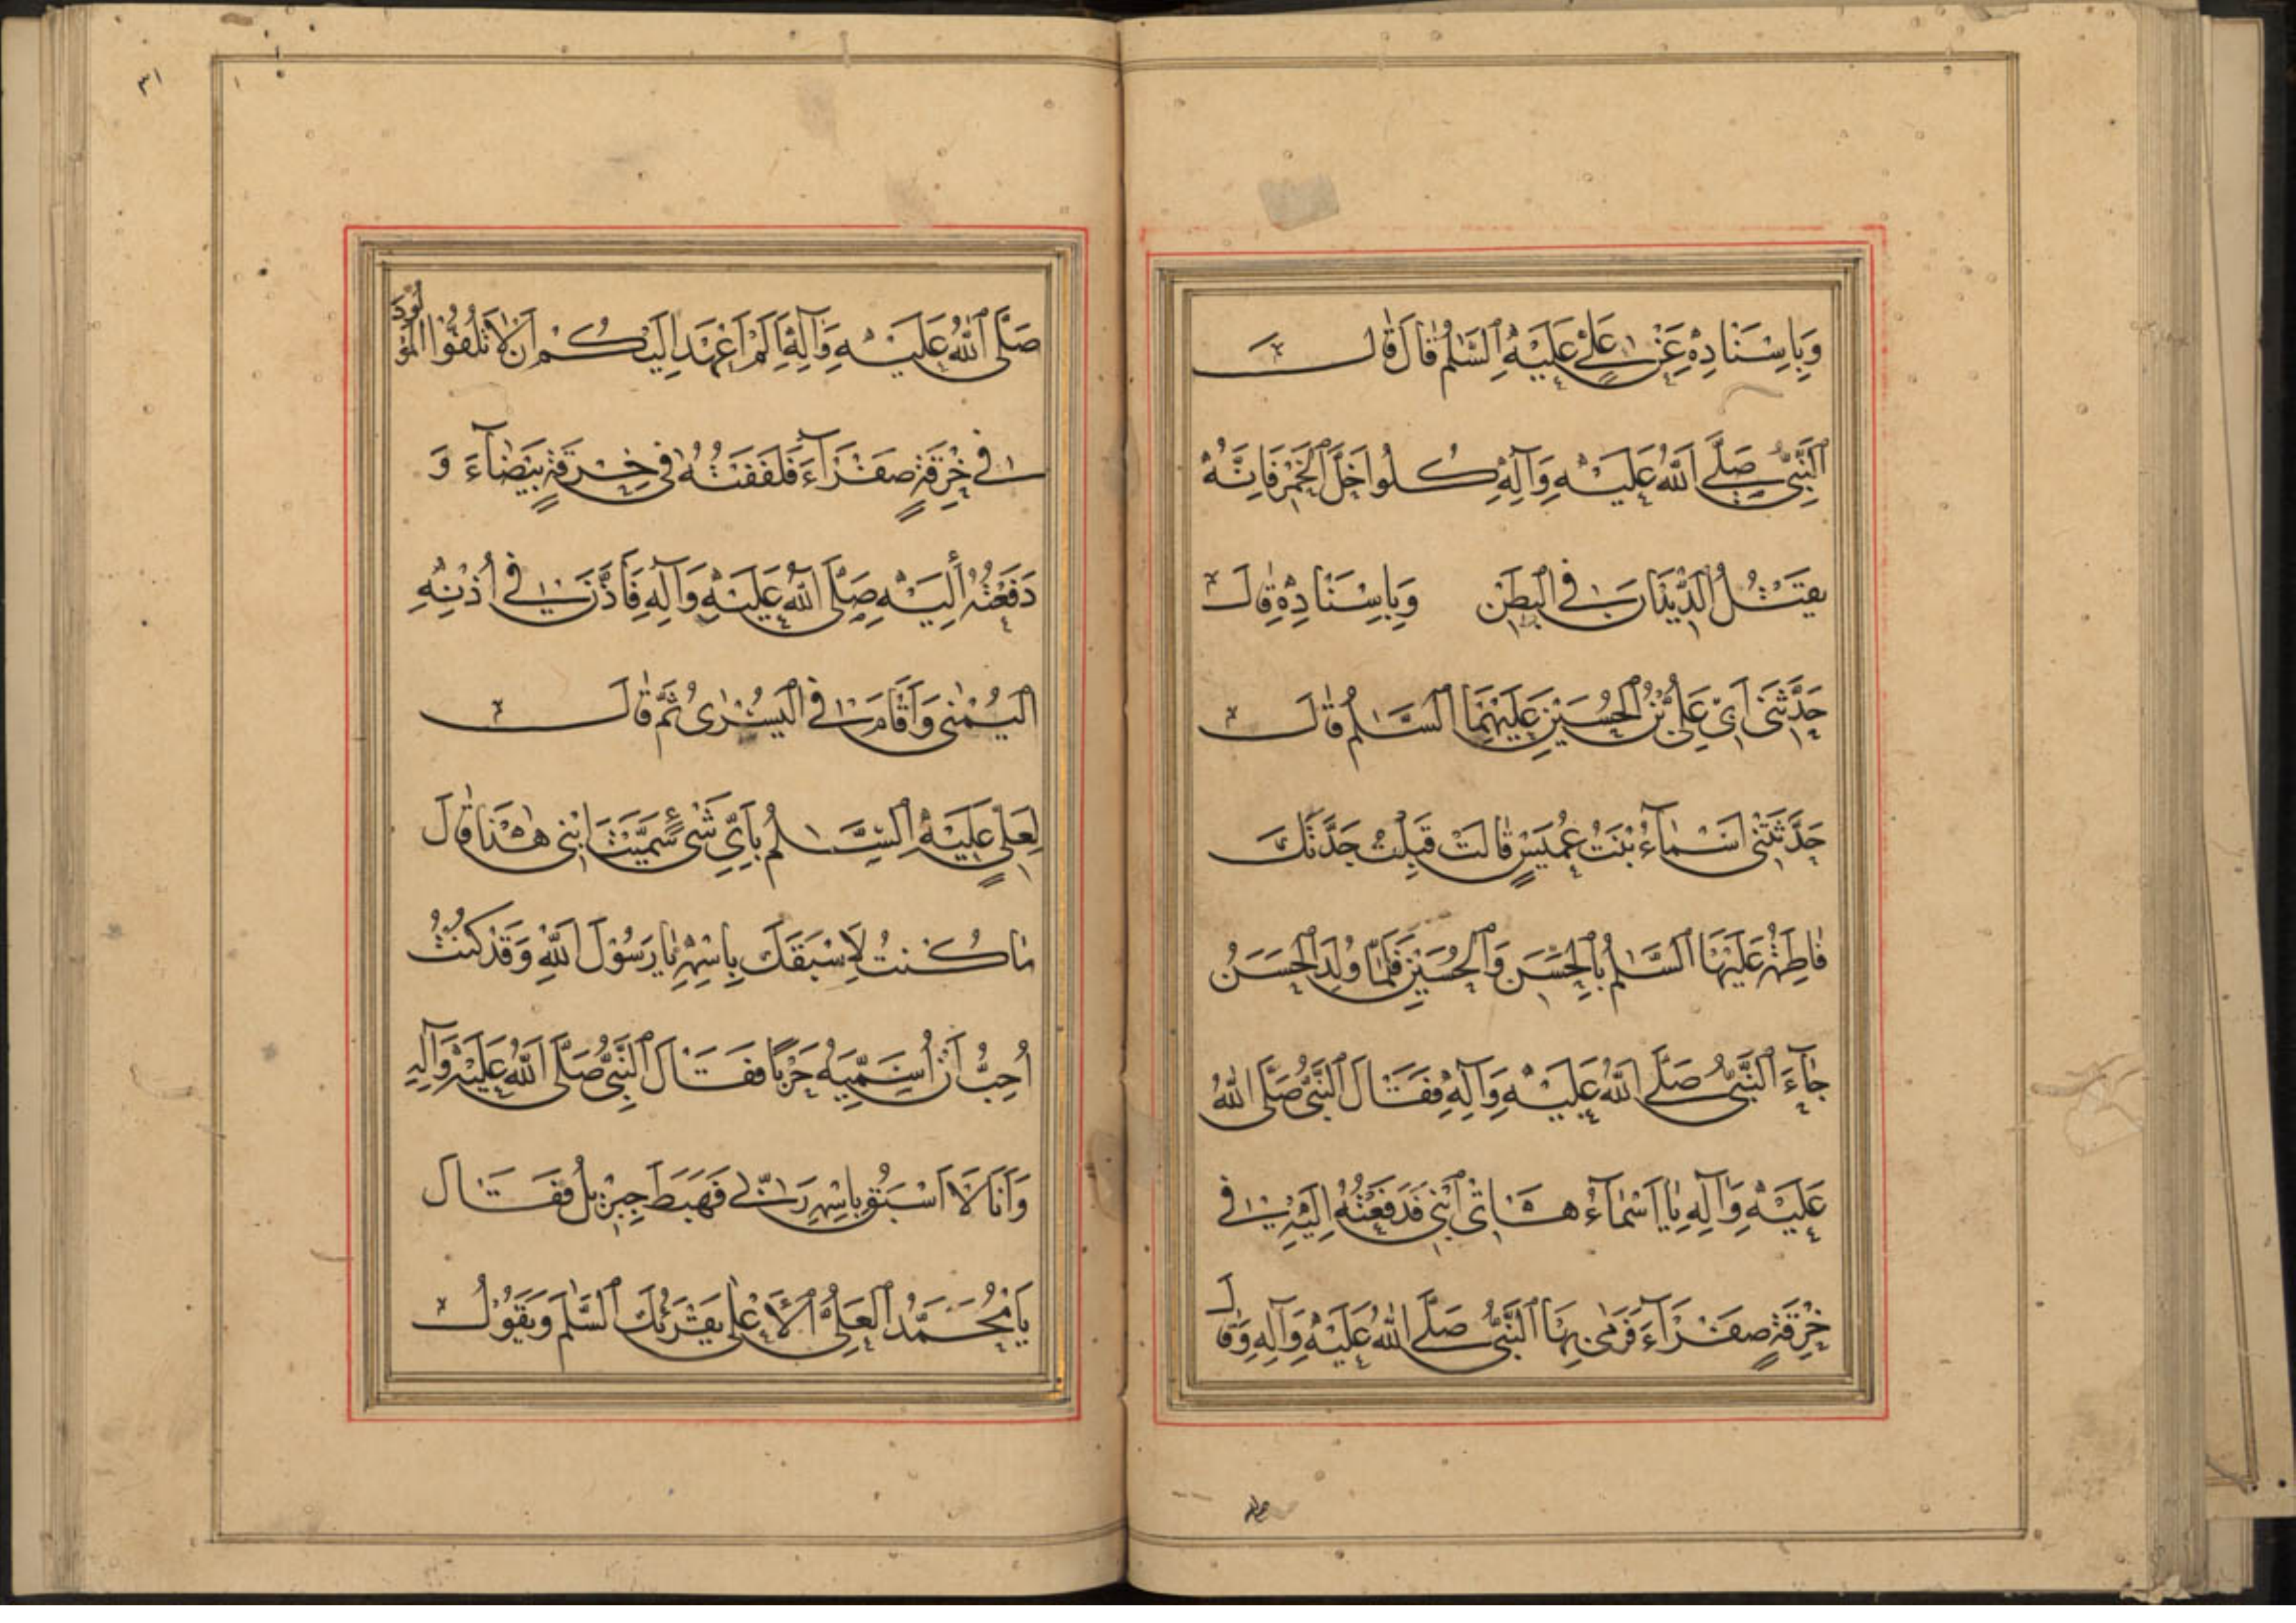 وَبِاِسْنَادِهِ عَنْ عَلِيٍّ عَلَيْهِ السَّلٰمُ قَالَ قَالَ
اَلنَّبِيُّ صَلَّى اللهُ عَلَيْهِ وَآلِهِ كُلُوا خَلَّ الْخَمْرِ فَاِنَّهُ
يَقْتُلُ الدِّيدَانَ فِي الْبَطْنِ وَبِاِسْنَادِهِ قَالَ
حَدَّثَنِي اَبِي عَلِيُّ بْنُ الْحُسَيْنِ عَلَيْهِمَا السَّلَامُ قَالَ
حَدَّثَتْنِي اَسْمَآءُ بِنْتُ عُمَيْسٍ قَالَتْ قَبِلْتُ جَدَّتَكَ
فَاطِمَةَ عَلَيْهَا السَّلَامُ بِالْحَسَنِ وَالْحُسَيْنِ فَلَمَّا وُلِدَ الْحَسَنُ
جَآءَ النَّبِيُّ صَلَّى اللهُ عَلَيْهِ وَآلِهِ فَقَالَ النَّبِيُّ صَلَّى اللهُ
عَلَيْهِ وَآلِهِ يَا اَسْمَآءُ هَاتِي ابْنِي فَدَفَعْتُهُ اِلَيْهِ فِي
خِرْقَةٍ صَفْرَآءَ فَرَمٰى بِهَا النَّبِيُّ صَلَّى اللهُ عَلَيْهِ وَآلِهِ وَقَالَ
صلى
٣١
صَلَّى اللهُ عَلَيْهِ وَآلِهِ اَلَمْ اَعْهَدْ اِلَيْكُمْ اَنْ لَا تَلُفُّوا الْمَوْلُودَ
فِي خِرْقَةٍ صَفْرَآءَ فَلَفَفْتُهُ فِي خِرْقَةٍ بَيْضَآءَ وَ
دَفَعْتُهُ اِلَيْهِ صَلَّى اللهُ عَلَيْهِ وَآلِهِ فَاَذَّنَ فِي اُذُنِهِ
الْيُمْنٰى وَاَقَامَ فِي الْيُسْرٰى ثُمَّ قَالَ
لِعَلِيٍّ عَلَيْهِ السَّلَامُ بِاَيِّ شَيْءٍ سَمَّيْتَ ابْنِي هٰذَا قَالَ
مَا كُنْتُ لِاَسْبَقَكَ بِاسْمِهِ يَا رَسُولَ اللهِ وَقَدْ كُنْتُ
اُحِبُّ اَنْ اُسَمِّيَهُ حَرْبًا فَقَالَ النَّبِيُّ صَلَّى اللهُ عَلَيْهِ وَآلِهِ
وَاَنَا لَا اَسْبَقُ بِاسْمِهِ رَبِّي فَهَبَطَ جِبْرَئِلُ فَقَالَ
يَا مُحَمَّدُ الْعَلِيُّ الْاَعْلٰى يُقْرِئُكَ السَّلٰمَ وَيَقُولُ